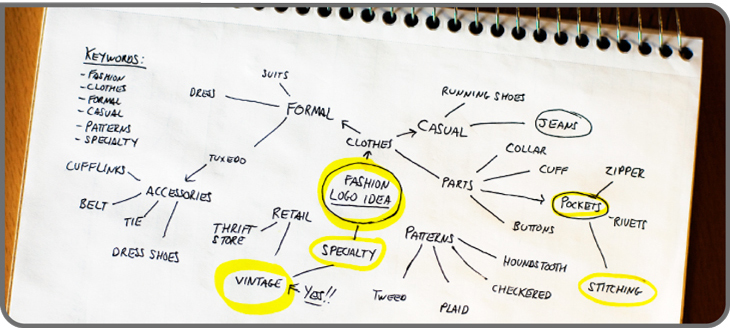 KEYWORDS:
- FASHION
- CLOTHES
- FORMAL
- CASUAL
- PATTERNS
- SPECIALTY
SUITS
DRESS
FORMAL
TUXEDO
CUFFLINKS
ACCESSORIES
BELT
TIE
DRESS SHOES
CLOTHES
FASHION
LOGO IDEA
RETAIL
THRIFT
STORE
SPECIALTY
VINTAGE
YES!!
RUNNING SHOES
CASUAL
JEANS
COLLAR
CUFF
PARTS
ZIPPER
POCKETS
-RIVETS
BUTTONS
STITCHING
PATTERNS
HOUNDSTOOTH
CHECKERED
PLAID
TWEED